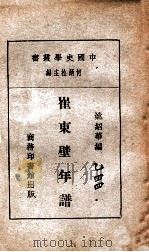 中國史學叢書
何炳松主編
崔東壁年譜
姚紹華編
商務印書館出版